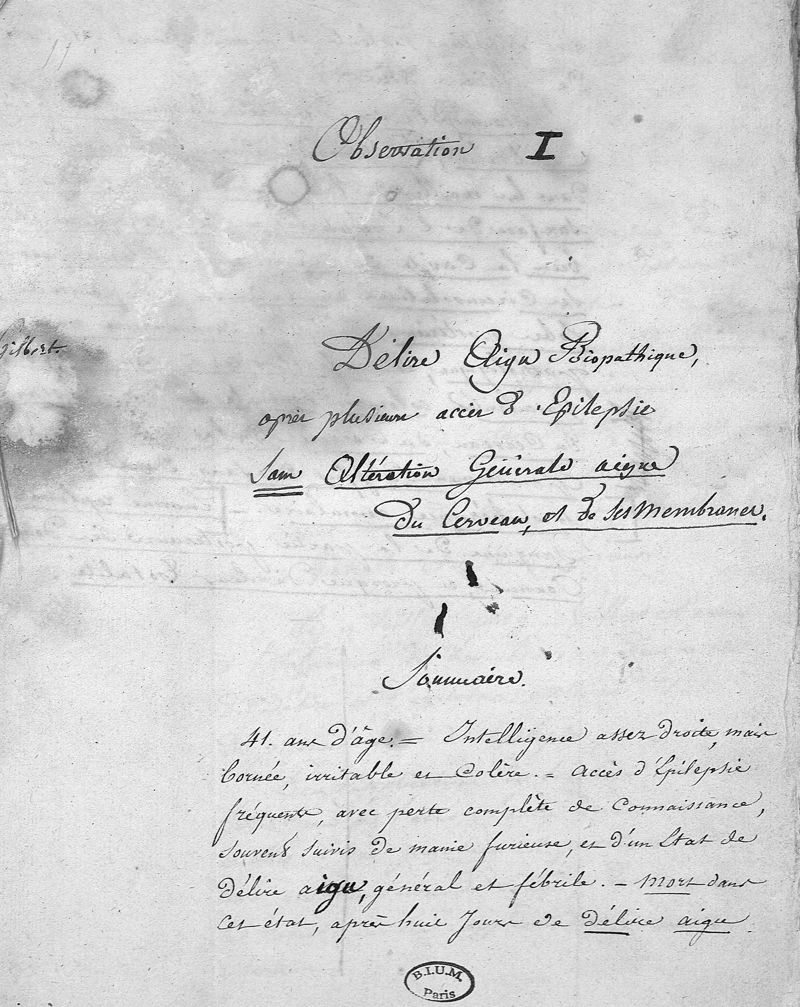 Observation I
Gilbert.
Délire Aigu Biopathique,
après plusieurs accès d'Epilepsie
Sans Altération Générale aigue
Du Cerveau, et de ses Membranes.
Sommaire.
41. ans d'âge. = Intelligence assez droite, mais
bornée, irritable et Colère. = Accès d'Epilepsie
fréquents, avec perte complète de Connaissance,
souvent suivis de manie furieuse, et d'un Etat de
Délire aigu, général et fébrile. - Mort dans
cet état, après huit Jours de délire aigu.
B.I.U.M.
Paris